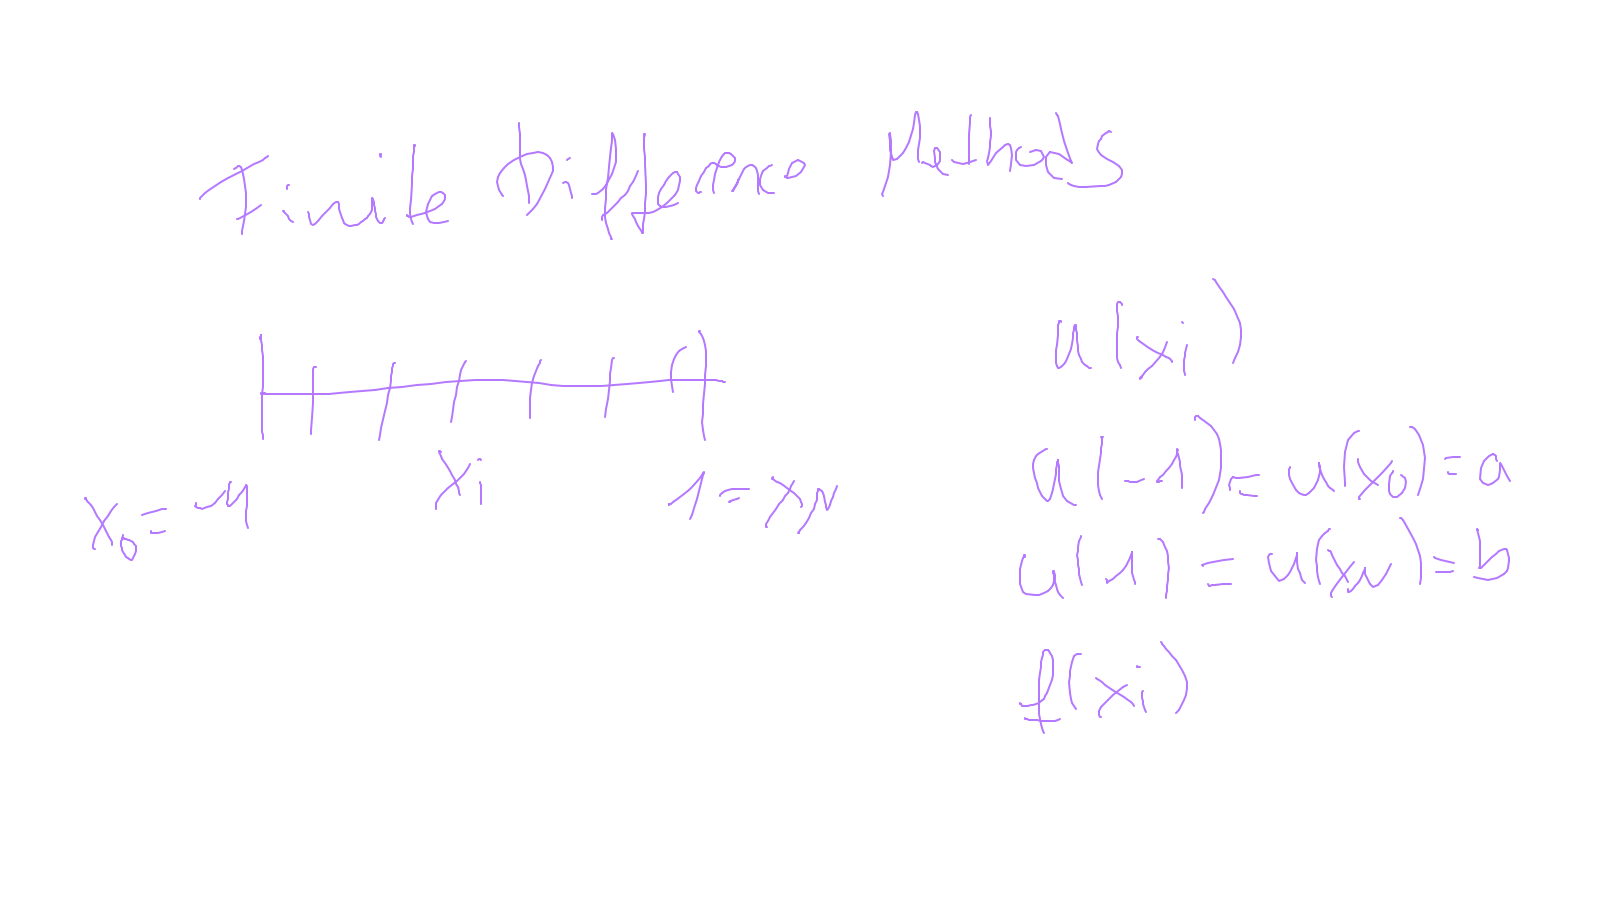 Finite Difference Methods
u(xi)
x0 = -1
xi
1 = xN
u(-1) = u(x0) = a
u(1) = u(xN) = b
f(xi)